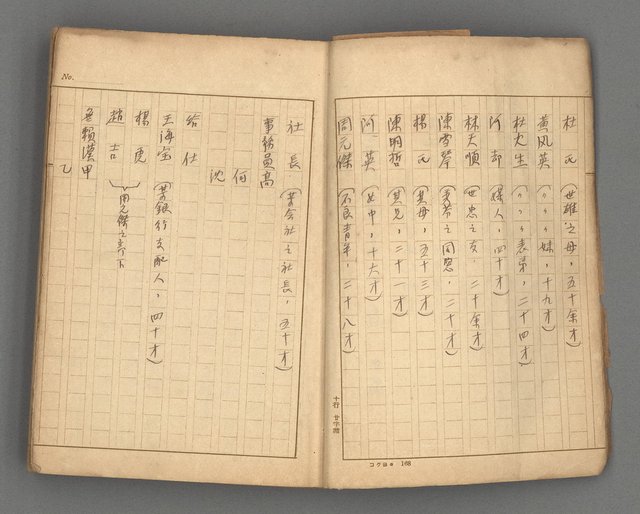 杜氏（世雄之母，五十余才）
黄凤英（〃〃〃妹，十九才）
杜火生（〃〃〃表弟，二十四才）
阿却（婦人，四十才）
林天順（世忠之友，二十余才）
陳雪琴（之同窓，二十才）
楊氏（其母，五十三才）
陳明哲（其兄，二十一才）
阿英（女中，十六才）
周元傑（不良青年，二十八才）
十行 廿字詰
コクヨ 168
No.
社長（某会社之社長，五十才）
事務員高
何
沈
給仕
王海全（某銀行支配人，四十才）
楊虎
趙吉
周元傑之手下
無賴漢甲
乙